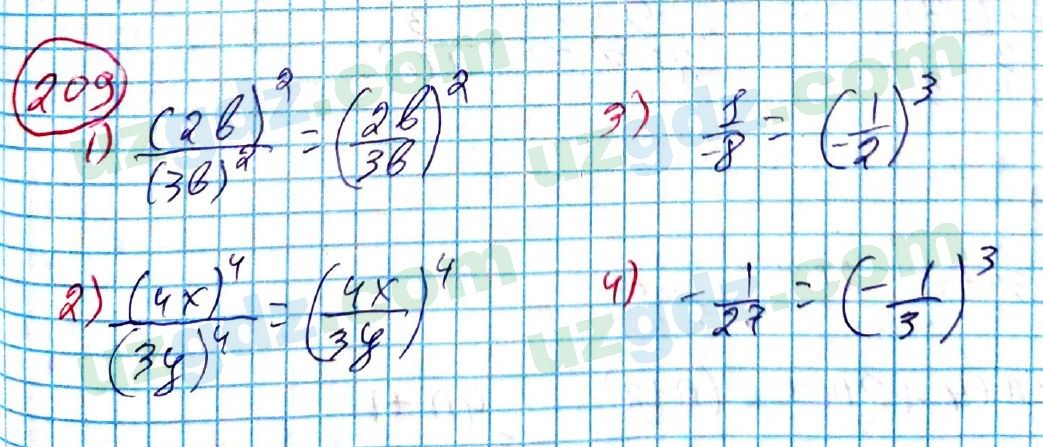 209
1) (2b)^2 / (3b)^2 = (2b / 3b)^2
2) (4x)^4 / (3y)^4 = (4x / 3y)^4
3) 1 / -8 = (1 / -2)^3
4) - 1 / 27 = (- 1 / 3)^3
uzgdz.com
uzgdz.com
uzgdz.com
uzgdz.com